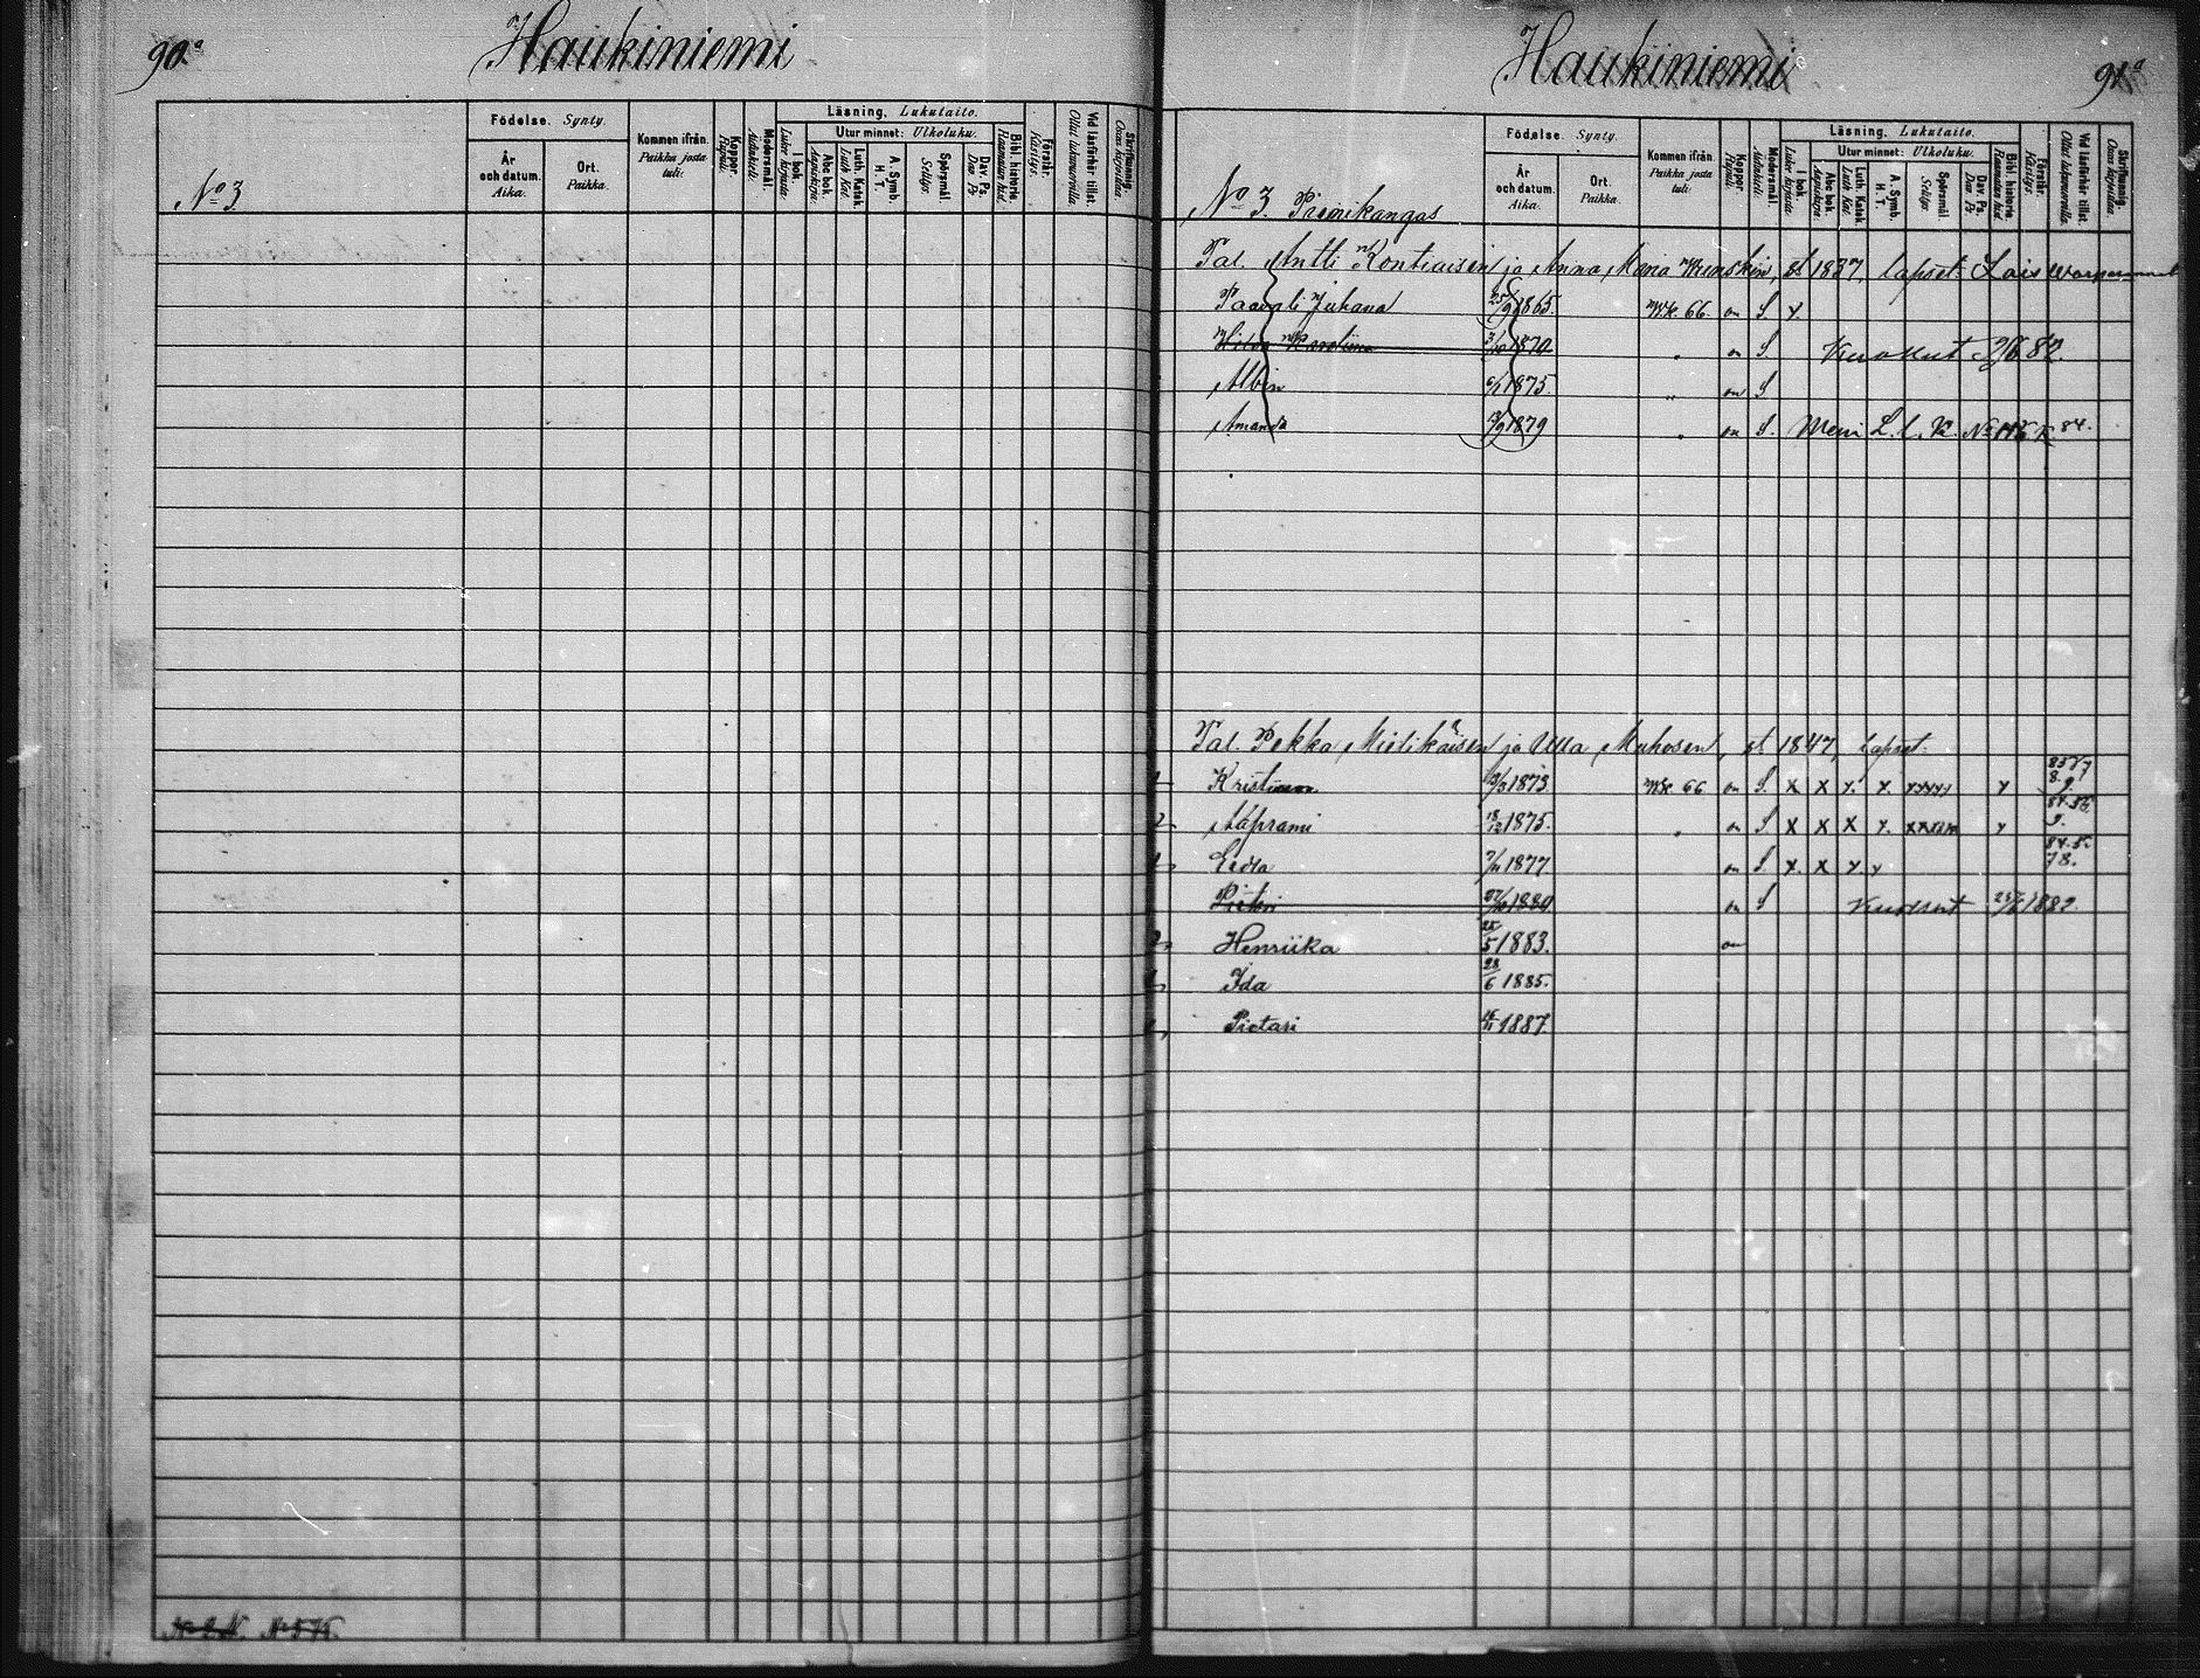 90a
Haukiniemi
Födelse. Synty.
År och datum. Aika.
Ort. Paikka.
Kommen ifrån. Paikka josta tuli.
Koppor. Rupuli.
Modersmål. Äidinkieli.
Läsning. Lukutaito.
I bok. Lukee kirjasta.
Utur minnet: Ulkoluku.
Abc bok. Aapiskirja.
Luth. Katek. Luth. Kat.
A. Symb. H. T.
Spörsmål. Selitys.
Dav. Ps. Dav. Ps.
Bibl. historie. Raamatun hist.
Förstår. Käsitys.
Vid läsförhör tillst. Ollut lukuvuoroilla.
Skriftunnig. Osaa kirjoittaa.
No 3
Haukiniemi
91a
Födelse. Synty.
År och datum. Aika.
Ort. Paikka.
Kommen ifrån. Paikka josta tuli.
Koppor. Rupuli.
Modersmål. Äidinkieli.
Läsning. Lukutaito.
I bok. Lukee kirjasta.
Utur minnet: Ulkoluku.
Abc bok. Aapiskirja.
Luth. Katek. Luth. Kat.
A. Symb. H. T.
Spörsmål. Selitys.
Dav. Ps. Dav. Ps.
Bibl. historie. Raamatun hist.
Förstår. Käsitys.
Vid läsförhör tillst. Ollut lukuvuoroilla.
Skriftunnig. Osaa kirjoittaa.
No 3. Pienikangas
Tal. Antti Kontiaisen ja Anna Maria st 1837, lapset:
Paavali Juhana 25/9 1865. Rk. 66. on S x.
Hilda Karolina 1870 " on S Kuollut 82.
Albin 6/1 1875. " on S
Amanda 13/9 1879 " on S. Meni L. l. K. No 84.
Tal. Pekka Mielikäisen ja Ulla Muhosen, st 1847, lapset:
Kristiina 1873. Rk. 66 on S. x x x. x. xxxxx x
Aaprami 18/12 1875. " on S x x x x. xxxxx x
Eedla 1877 on S. x. x x. x 84.5. 78.
Pietari 1880 on S Kuollut 1882.
Henriika 25/5 1883. on
Ida 28/6 1885.
Pietari 1887.